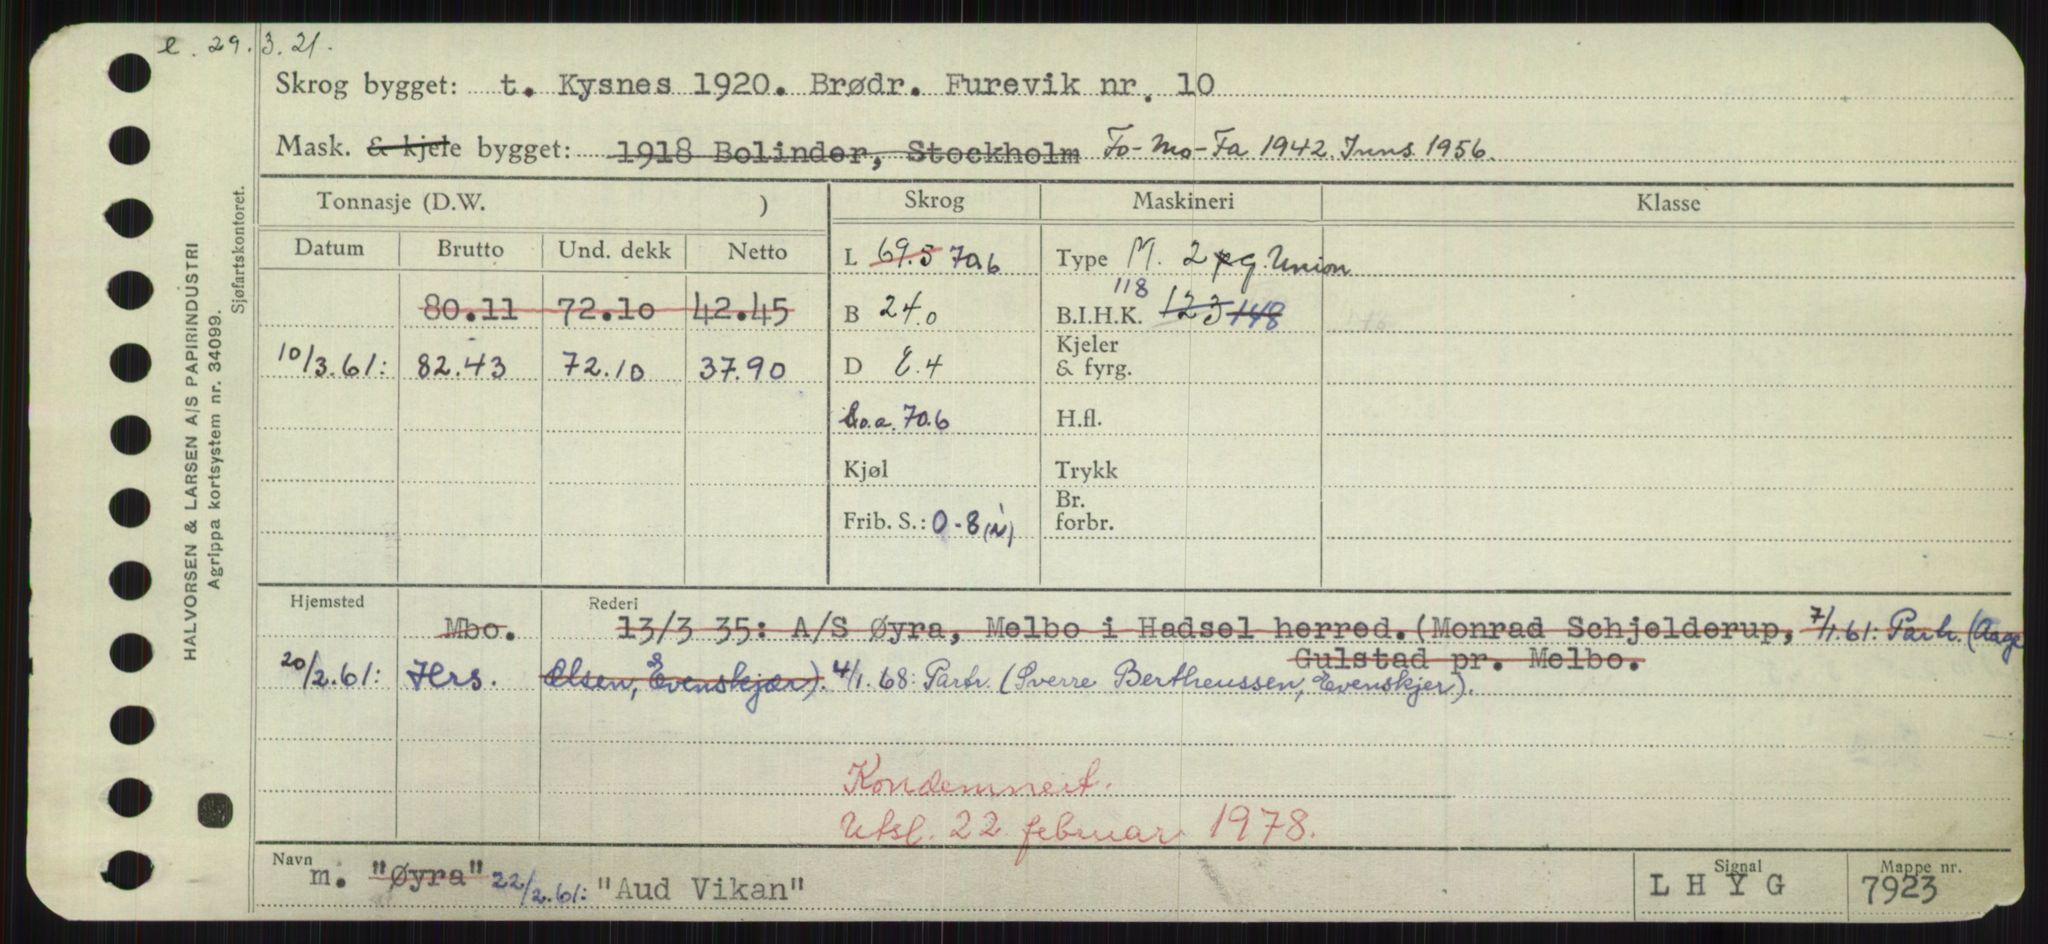 e. 29.3.21.
Skrog bygget: t. Kysnes 1920. Brødr. Furevik nr. 10
Mask. & kjele bygget: 1918 Bolinder, Stockholm Fo-Mo-Fa 1942. Inns. 1956.
Tonnasje (D.W. ) Skrog Maskineri Klasse
Datum Brutto Und. dekk Netto L 69.5 70.6 Type M. 2 pg. Union
80.11 72.10 42.45 B 24.0 B.I.H.K. 118 123 148
10/3.61: 82.43 72.10 37.90 D 8.4 Kjeler & fyrg.
L.o.a. 70.6 H.fl.
Kjøl Trykk
Frib. S.: 0-8 (N) Br. forbr.
Hjemsted Rederi
Mbo. 13/3 35: A/S Øyra, Melbo i Hadsel herred. (Monrad Schjelderup, 7/1.61: Partr. (Aage
Gulstad pr. Melbo.
20/2.61: Hrs. Olsen, Evenskjær). 4/1.68: Partr. (Sverre Bertheussen, Evenskjer).
Kondemnert.
Utsl. 22 februar 1978.
Navn Signal Mappe nr.
m. "Øyra" 22/2.61: "Aud Vikan" L H Y G 7923
HALVORSEN & LARSEN A/S PAPIRINDUSTRI
Agrippa kortsystem nr. 34099.
Sjøfartskontoret.